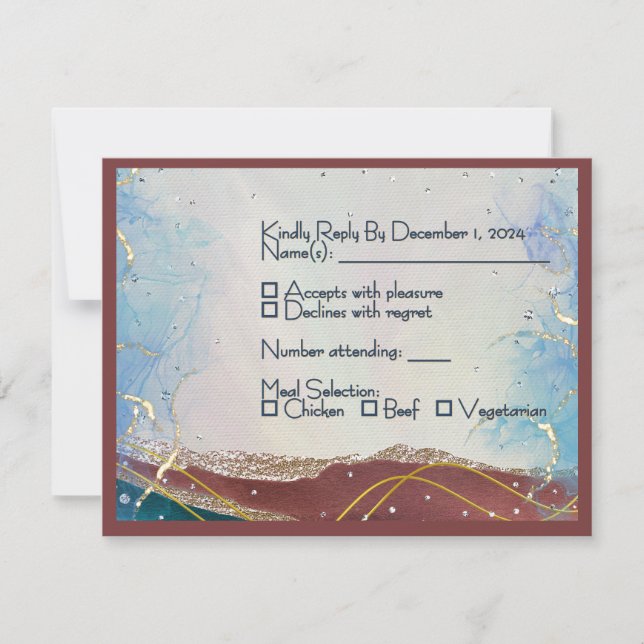 Kindly Reply By December 1, 2024
Name(s): ____________________
☐ Accepts with pleasure
☐ Declines with regret
Number attending: ____
Meal Selection:
☐ Chicken ☐ Beef ☐ Vegetarian